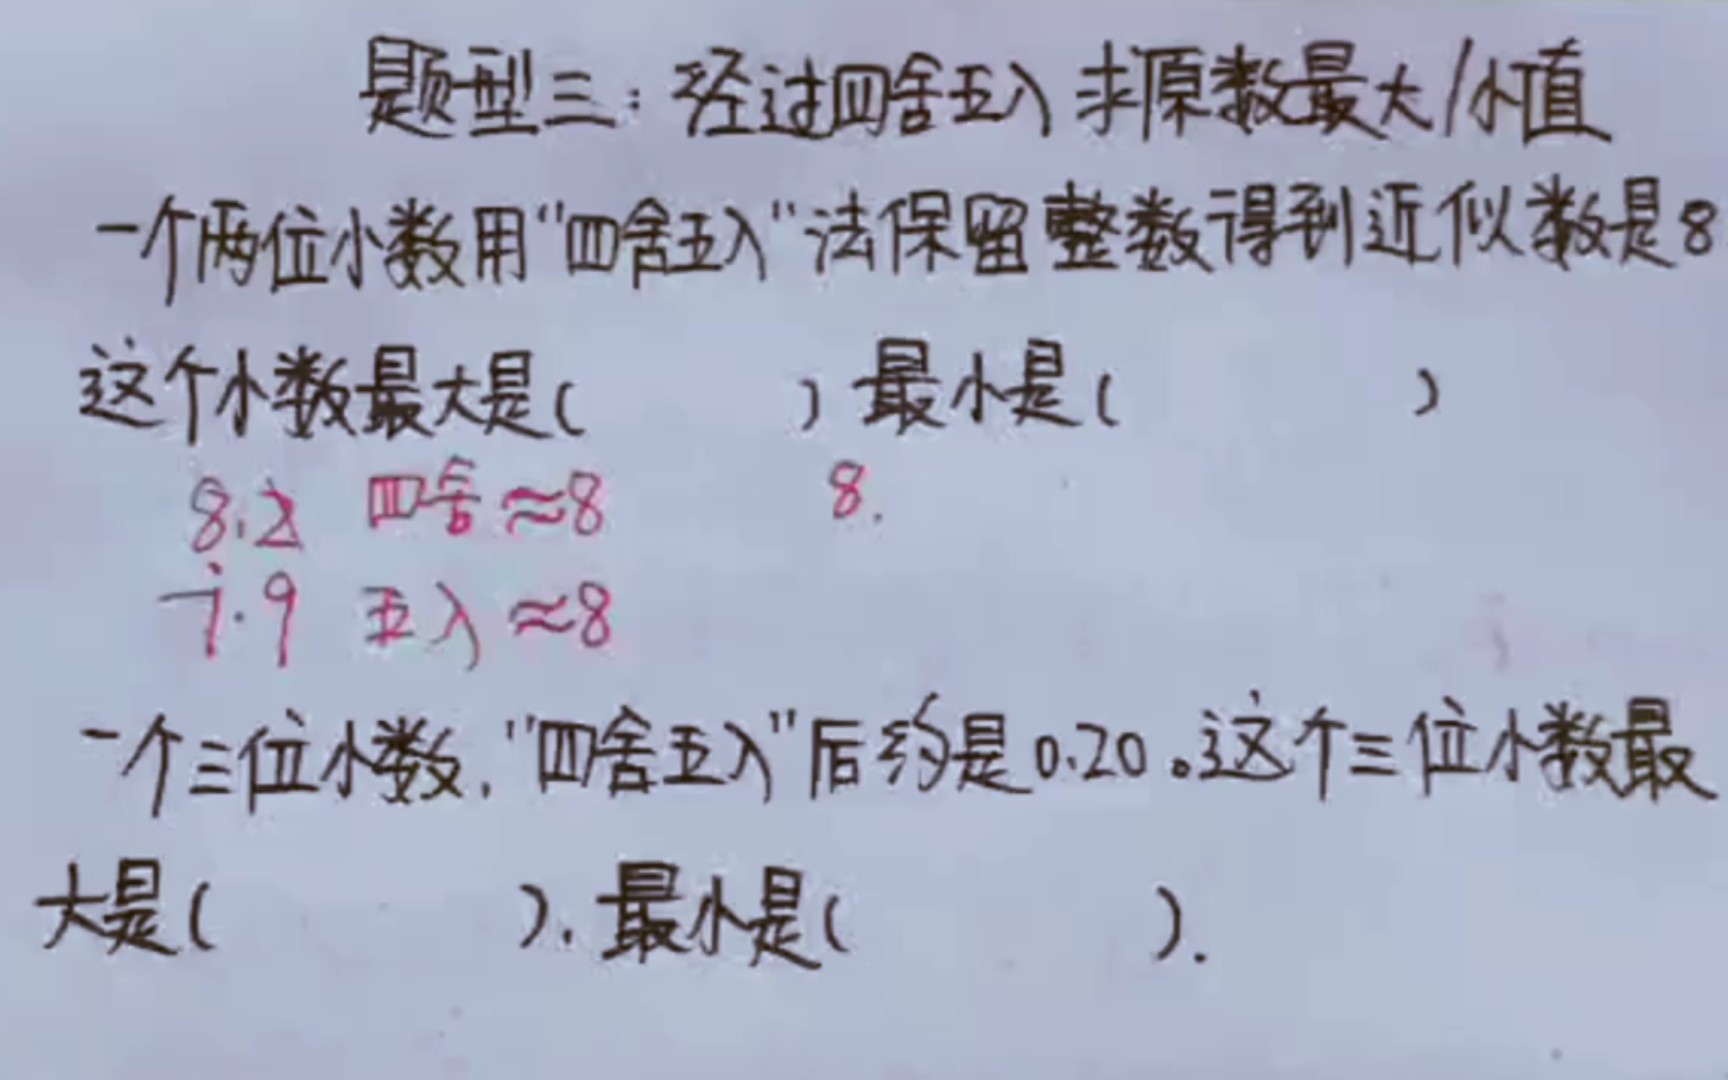 题型三：经过四舍五入求原数最大/小值
一个两位小数用“四舍五入”法保留整数得到近似数是8
这个小数最大是（ ）最小是（ ）
8.2 四舍≈8 8.
7.9 五入≈8
一个三位小数，“四舍五入”后约是0.20。这个三位小数最
大是（ ）.最小是（ ）.